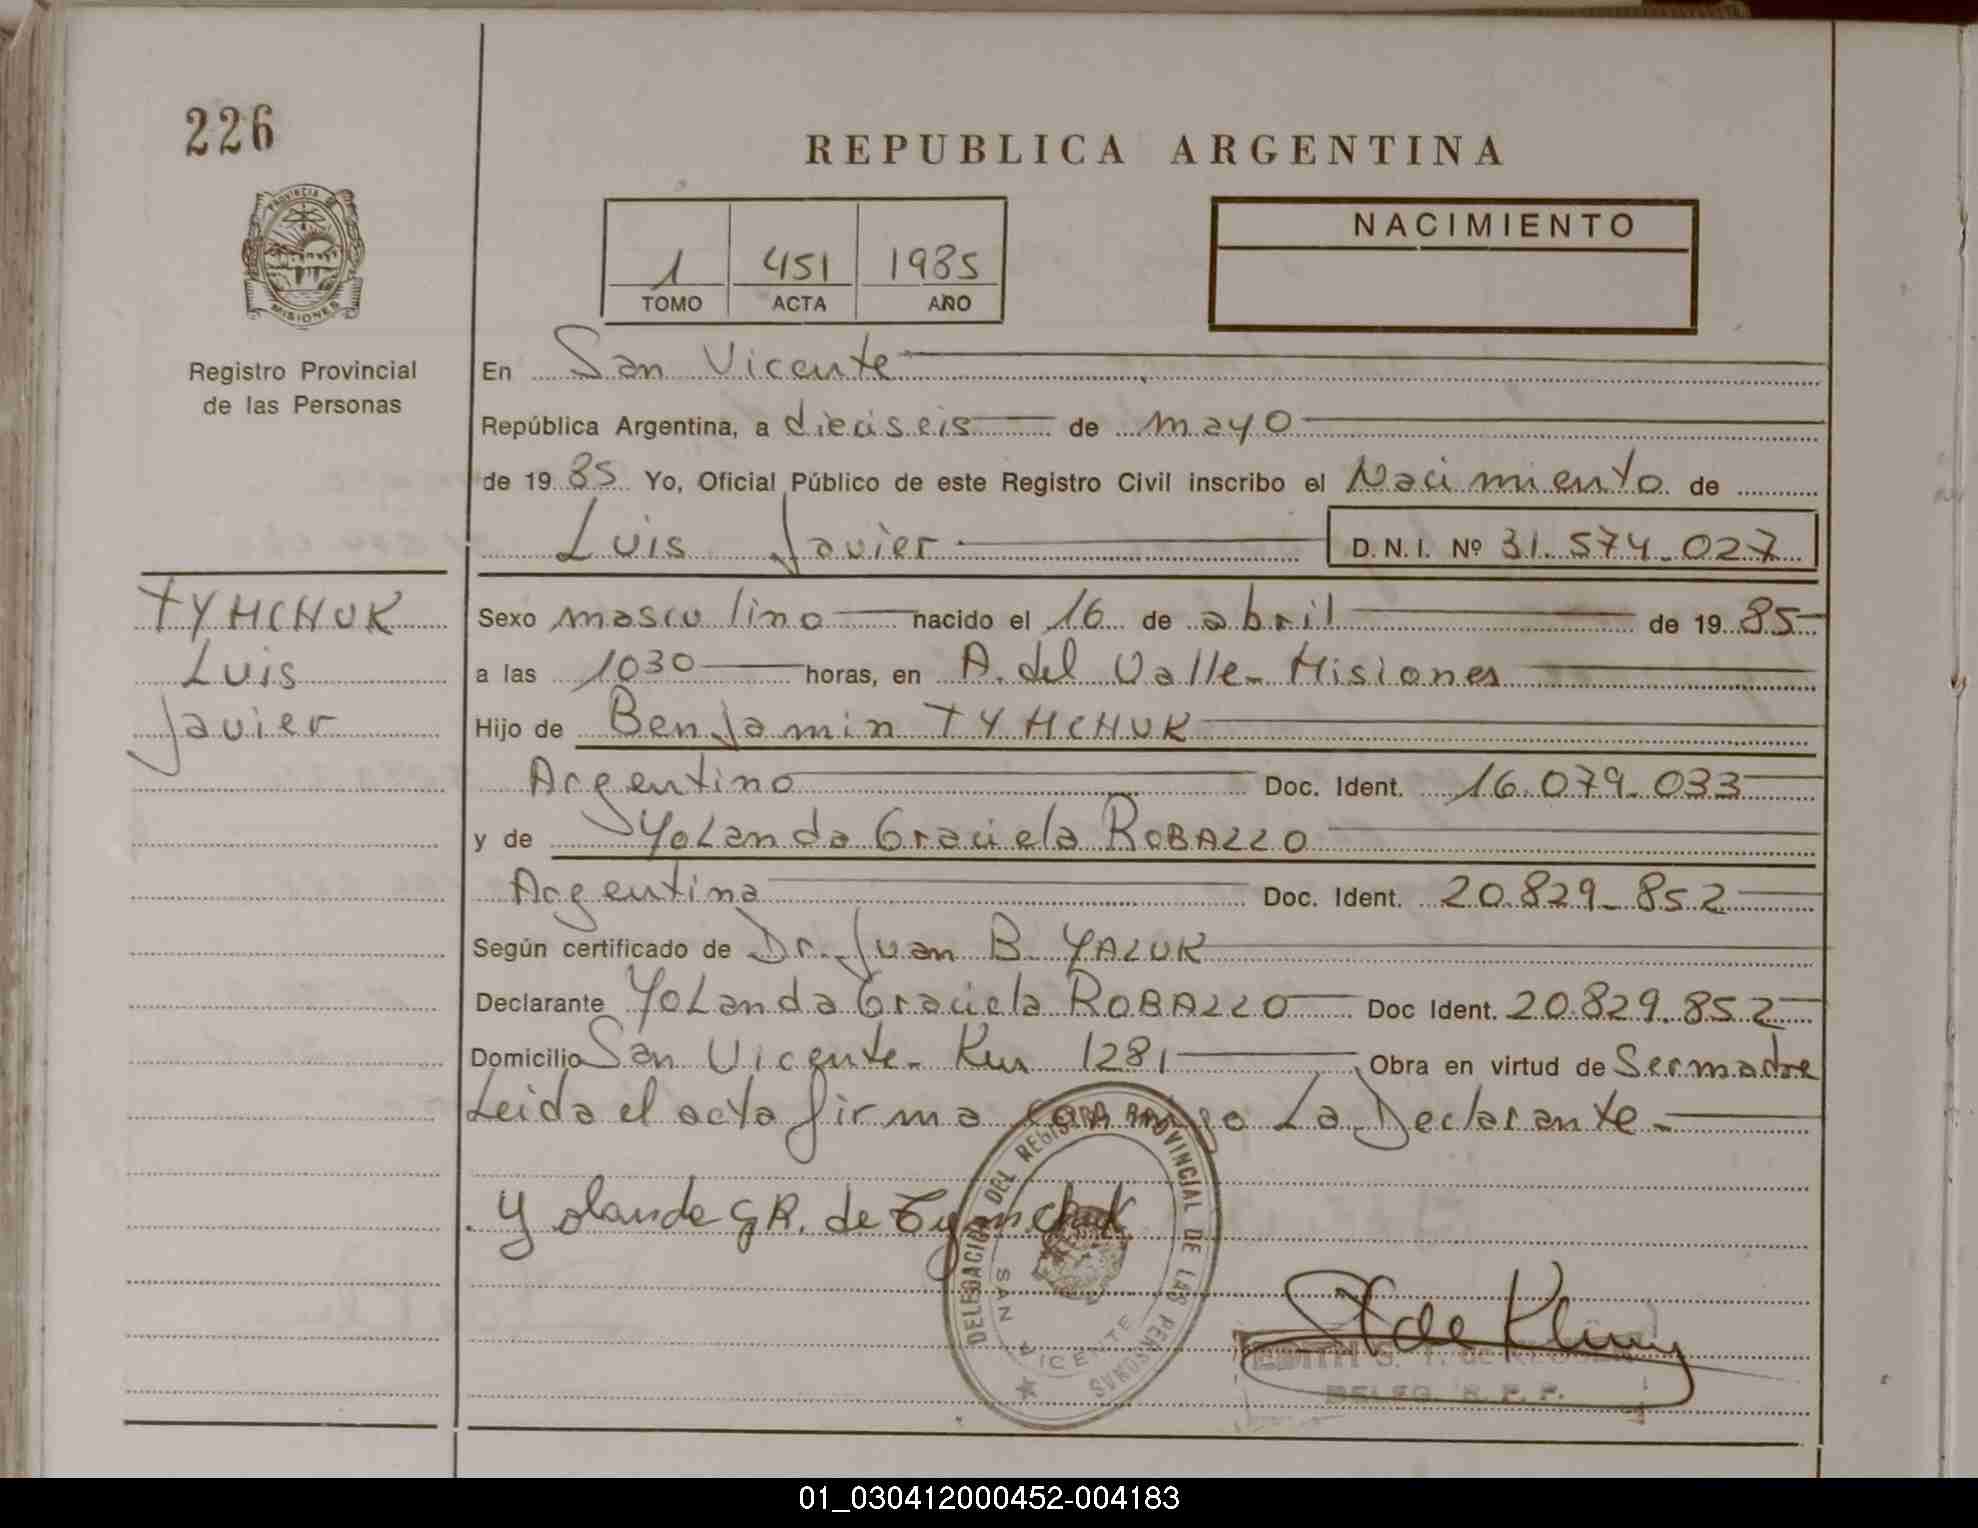 226
REPUBLICA ARGENTINA
PROVINCIA DE
MISIONES
1 451 1985
TOMO ACTA AÑO
NACIMIENTO
Registro Provincial
de las Personas
En San Vicente
República Argentina, a dieciseis de mayo
de 19 85 Yo, Oficial Público de este Registro Civil inscribo el Nacimiento de
Luis Javier D. N. I. Nº 31.574.027
TYMCHUK
Luis
Javier
Sexo masculino nacido el 16 de abril de 19 85
a las 1030 horas, en A. del Valle - Misiones
Hijo de Benjamin TYMCHUK
Argentino Doc. Ident. 16.079.033
y de Yolanda Graciela ROBAZZO
Argentina Doc. Ident. 20.829.852
Según certificado de Dr. Juan B. YALUK
Declarante Yolanda Graciela ROBAZZO Doc Ident. 20.829.852
Domicilio San Vicente - Km 1281 Obra en virtud de Ser madre
Leida el acta firma conmigo La Declarante -
Yolanda G R. de Tymchuk
DELEGACION DEL REGISTRO PROVINCIAL DE LAS PERSONAS
SAN VICENTE
de
EDITH S. de
DELEG. R. P. P.
01_030412000452-004183